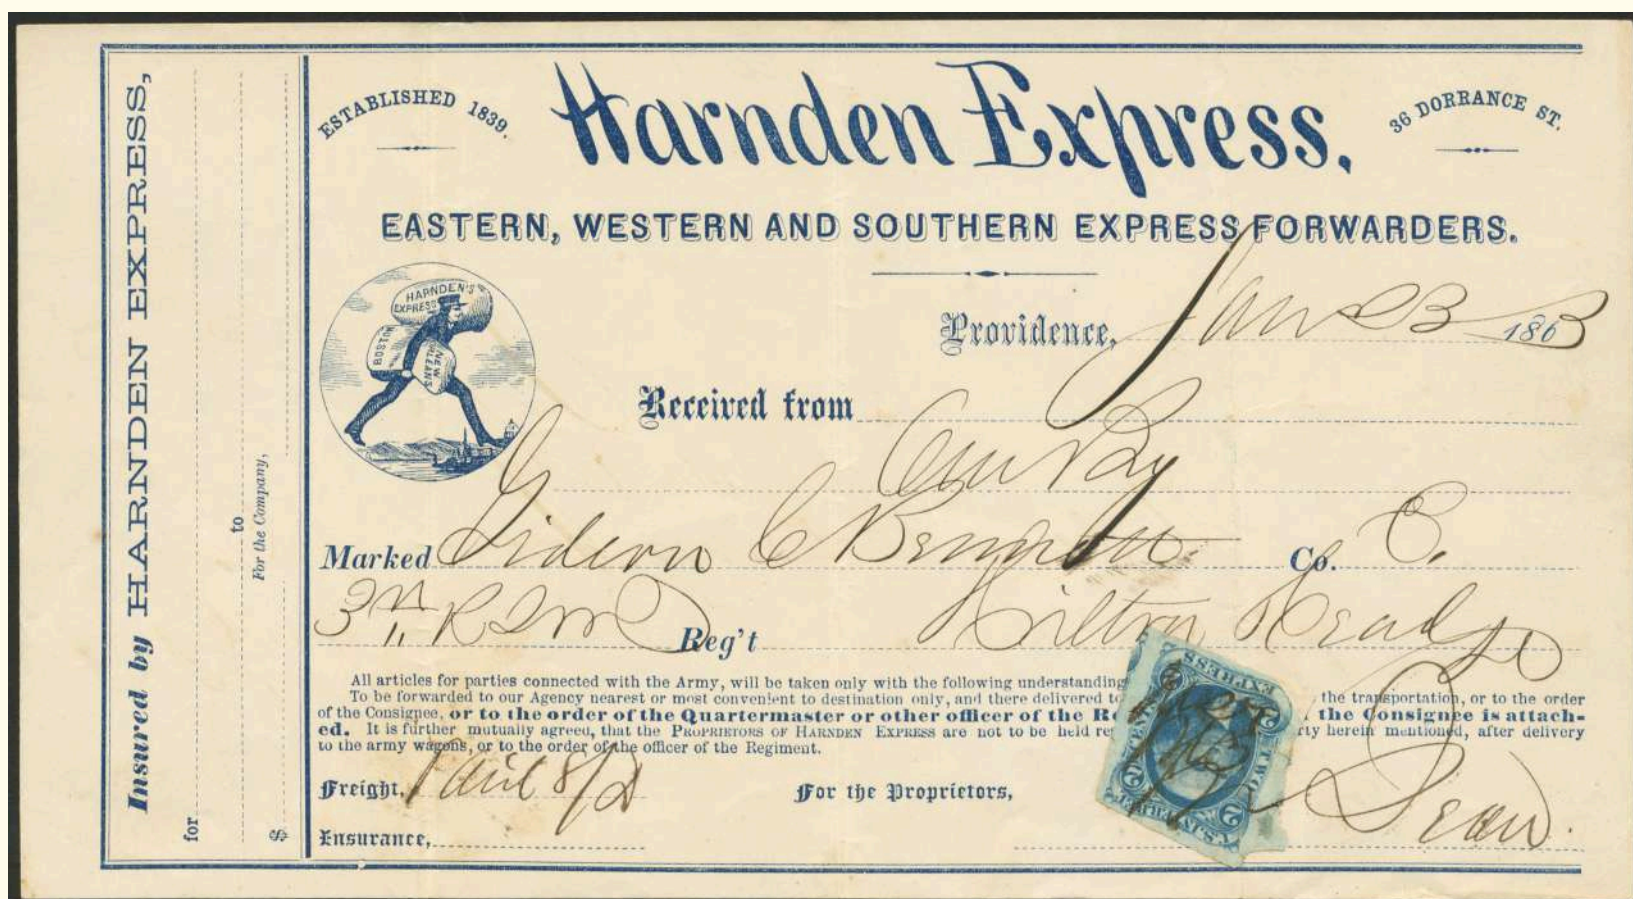 Insured by HARNDEN EXPRESS,
for
to
For the Company,
$
ESTABLISHED 1839.
Harnden Express.
36 DORRANCE ST.
EASTERN, WESTERN AND SOUTHERN EXPRESS FORWARDERS.
HARNDEN'S
EXPRESS
BOSTON
NEW
ORLEANS
Providence, Jan 23 1863
Received from
One Bx
Marked Gideon C Bennett Co. C.
3rd R I Reg't Hilton Head
All articles for parties connected with the Army, will be taken only with the following understanding
To be forwarded to our Agency nearest or most convenient to destination only, and there delivered to the transportation, or to the order
of the Consignee, or to the order of the Quartermaster or other officer of the Re the Consignee is attach-
ed. It is further mutually agreed, that the PROPRIETORS OF HARNDEN EXPRESS are not to be held re rty herein mentioned, after delivery
to the army wagons, or to the order of the officer of the Regiment.
Freight, Paid 8/
For the Proprietors,
Dean.
Insurance,
EXPRESS
2 CENTS
TWO
U.S. INTER. REV.